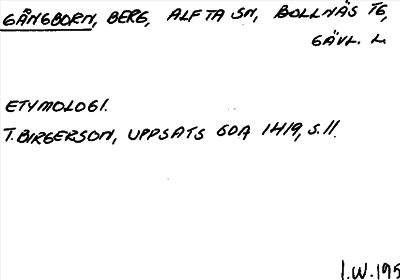 GÅNGBORN, BERG, ALFTA SN, BOLLNÄS TG,
GÄVL. L.
ETYMOLOGI.
T. BIRGERSON, UPPSATS GDA 1419, S. 11.
I.W. 195